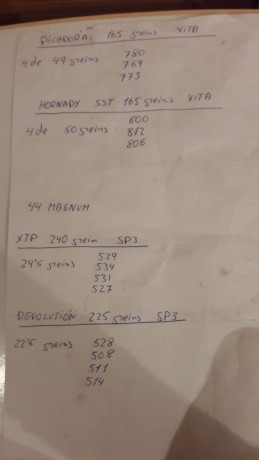 PICADORA: 165 greins VITA
780
4 de 49 greins 769
773
HORNADY SST 165 greins VITA
800
4 de 50 greins 812
806
44 MAGNUM
XTP 240 grein SP3
529
24'5 greins 534
531
527
REVOLUTIÓN 225 greins SP3
22'5 greins 528
508
511
514